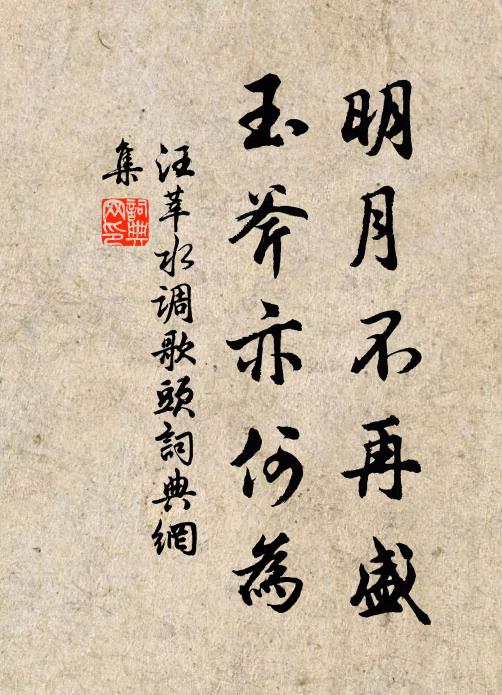 明月不再盛
玉斧亦何為
汪莘水调歌頭詞典網
集
詞典網印